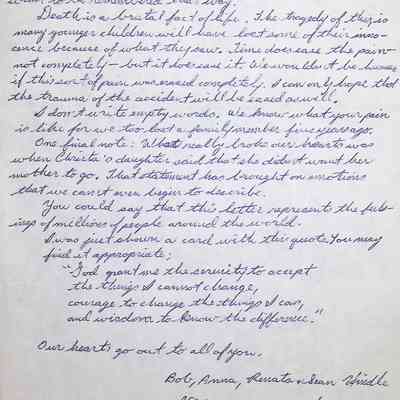 Death is a brutal fact of life. The tragedy of this is
many younger children will have lost some of their inno-
cence because of what they saw. Time does ease the pain-
not completely - but it does ease it. We wouldn't be human
if this sort of pain was erased completely. I can only hope that
the trauma of the accident will be eased as well.
I don't write empty words. We know what your pain
is like for we too lost a family member five years ago.
One final note: What really broke our hearts was
when Christa's daughter said that she didn't want her
mother to go. That statement has brought on emotions
that we can't even begin to describe.
You could say that this letter represents the feel-
ings of millions of people around the world.
I was just shown a card with this quote. You may
find it appropriate;
"God grant me the serenity to accept
the things I cannot change,
courage to change the things I can,
and wisdom to know the difference."
Our hearts go out to all of you.
Bob, Anna, Renata & Sean